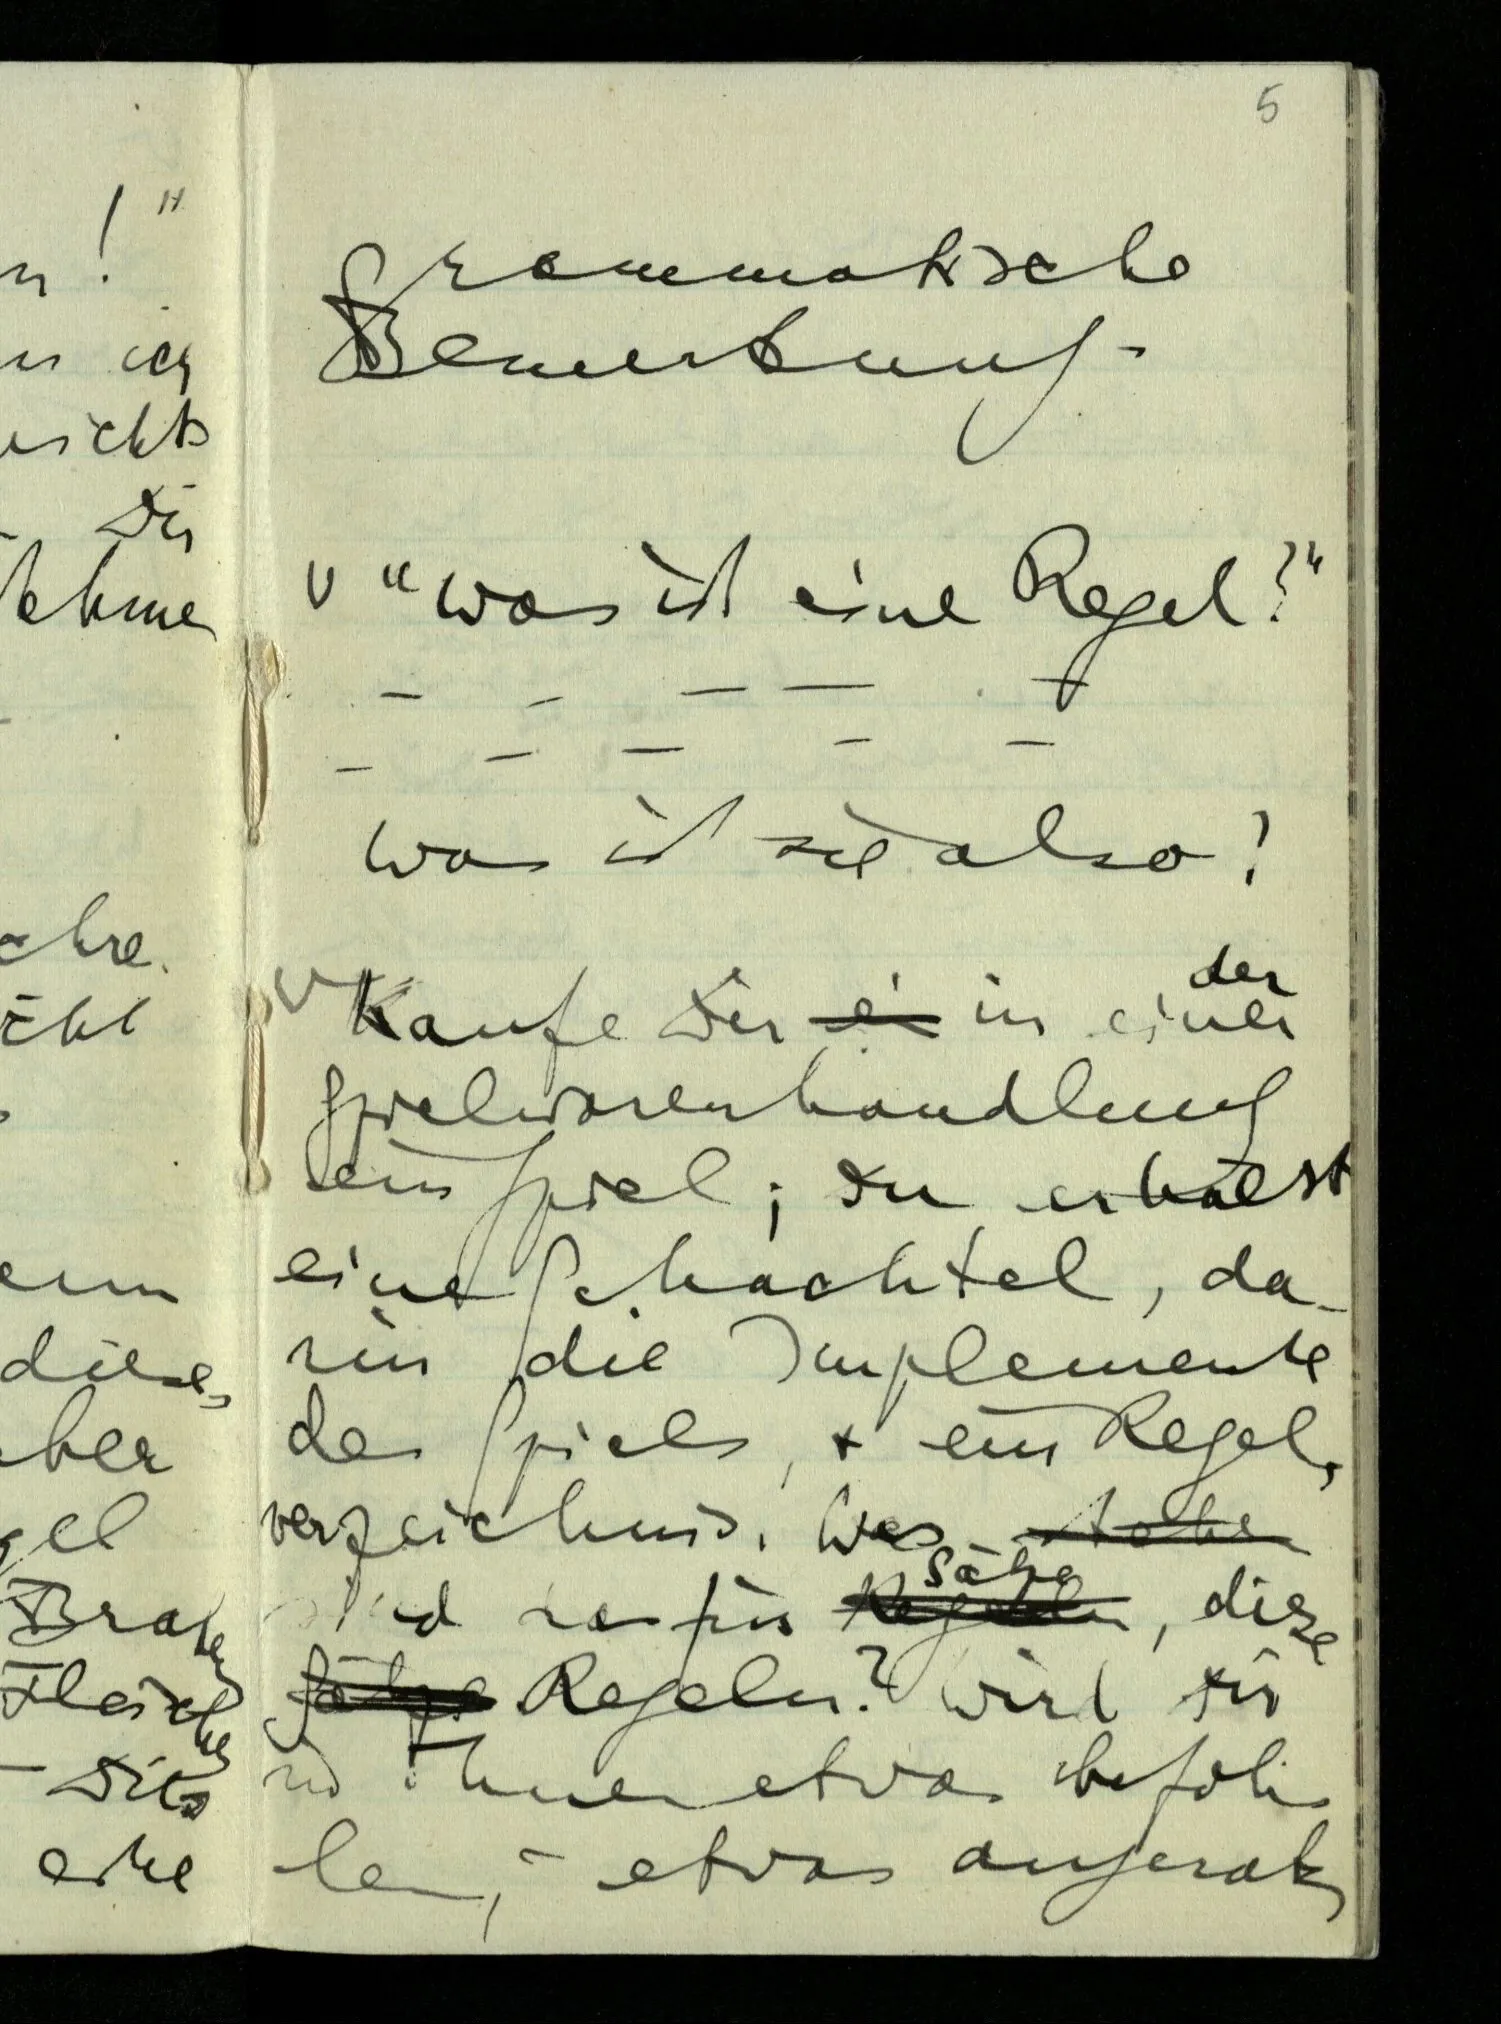 5
Grammatische
Bemerkung -
v "Was ist eine Regel?"
– – – – –
– – – – –
Was ist sie also?
der
v Kaufe Dir ei in einer
Spielwarenhandlung
ein Spiel; Du erhälst
eine Schachtel, da-
rin die Implemente
des Spiels, + ein Regel,
verzeichnis. Was
Sätze
sind das für Regeln, diese
Sätze Regeln? Wird Dir
in ihnen etwas befoh-
len, – etwas angerat
n!"
ich
nichts
Dir
nehme
dieses
aber
Braten
Fleisches
– Dies
eine